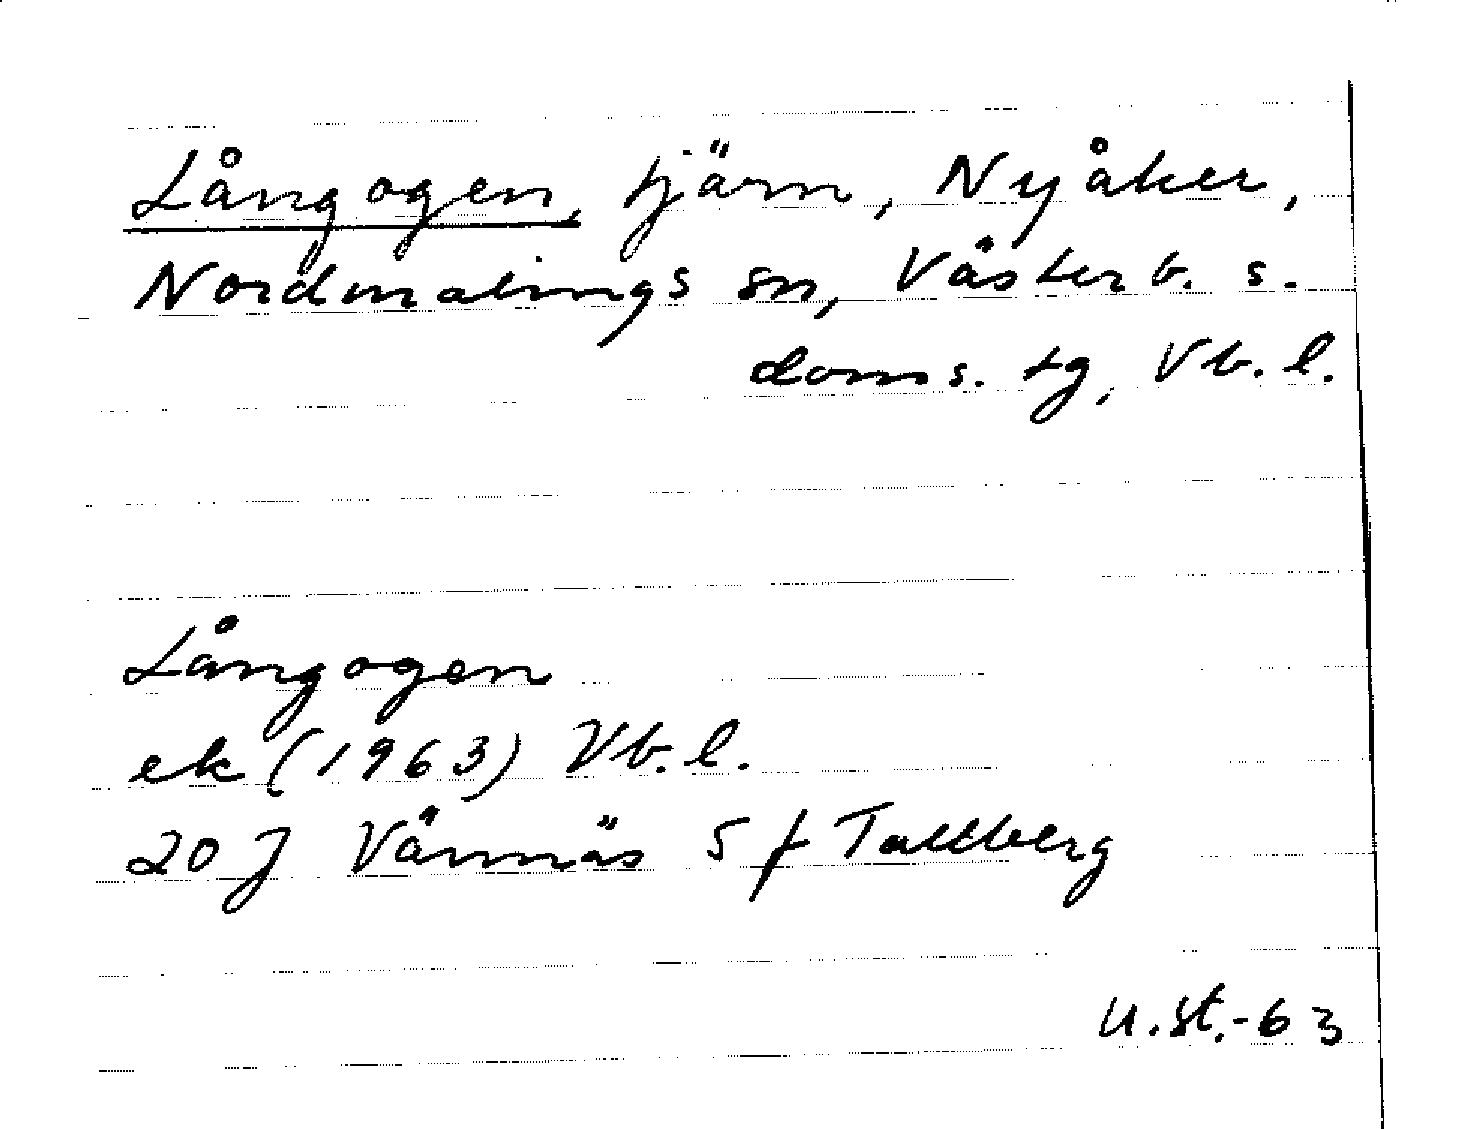 Långogen, tjärn, Nyåker,
Nordmalings sn, Västerb. s.
doms. tg, Vb. l.
Långogen
ek (1963) Vb. l.
20 J Vännäs S f Tallberg
U. St. -63